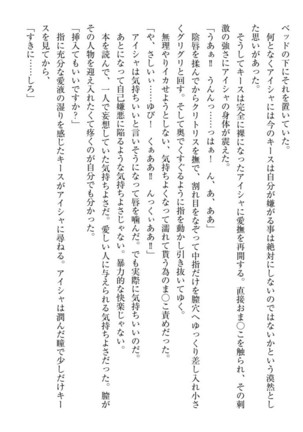 ベッドの下にそれを置いていた。
　何となくアイシャには今のキースは自分が嫌がる事は絶対にしないのではないかという漠然とし
た思いがあった。
　そうしてキースは完全に裸になったアイシャに愛撫を再開する。直接おま〇こを触られ、その刺
激の強さにアイシャの身体が震えた。
「うあぁ！　うぅ……っはぁ！　ん、あ、ああ」
　陰唇を揉んでからクリトリスを撫で、割れ目をなぞって中指だけを膣穴へゆっくり差し入れ小さ
くグリグリと回す。そして奥でくすぐるように指を動かし引き抜いてゆく。
　無理やりイカせようとしない、気持ちよくなって濡れて貰う為のま〇こ責めだった。
「や、さしい……ゆび！　くあああ！　んっくぃいああ！」
　アイシャは気持ちいいと言いそうになって唇を噛んだ。でも実際に気持ちいいのだ。
　あとになって自己嫌悪に陥るような気持ちよさじゃない。暴力的な快楽じゃない。
　本を読んで、一人で妄想していた気持ちよさだ。愛しい人に与えられる気持ちよさだった。膣が
その人物を迎え入れたくて疼くのが自分でも分かった。
「挿入てもいいですか？」
　指に充分な愛液の湿りを感じたキースがアイシャに尋ねる。アイシャは潤んだ瞳で少しだけキー
スを見てから、
「すきに……しろ」